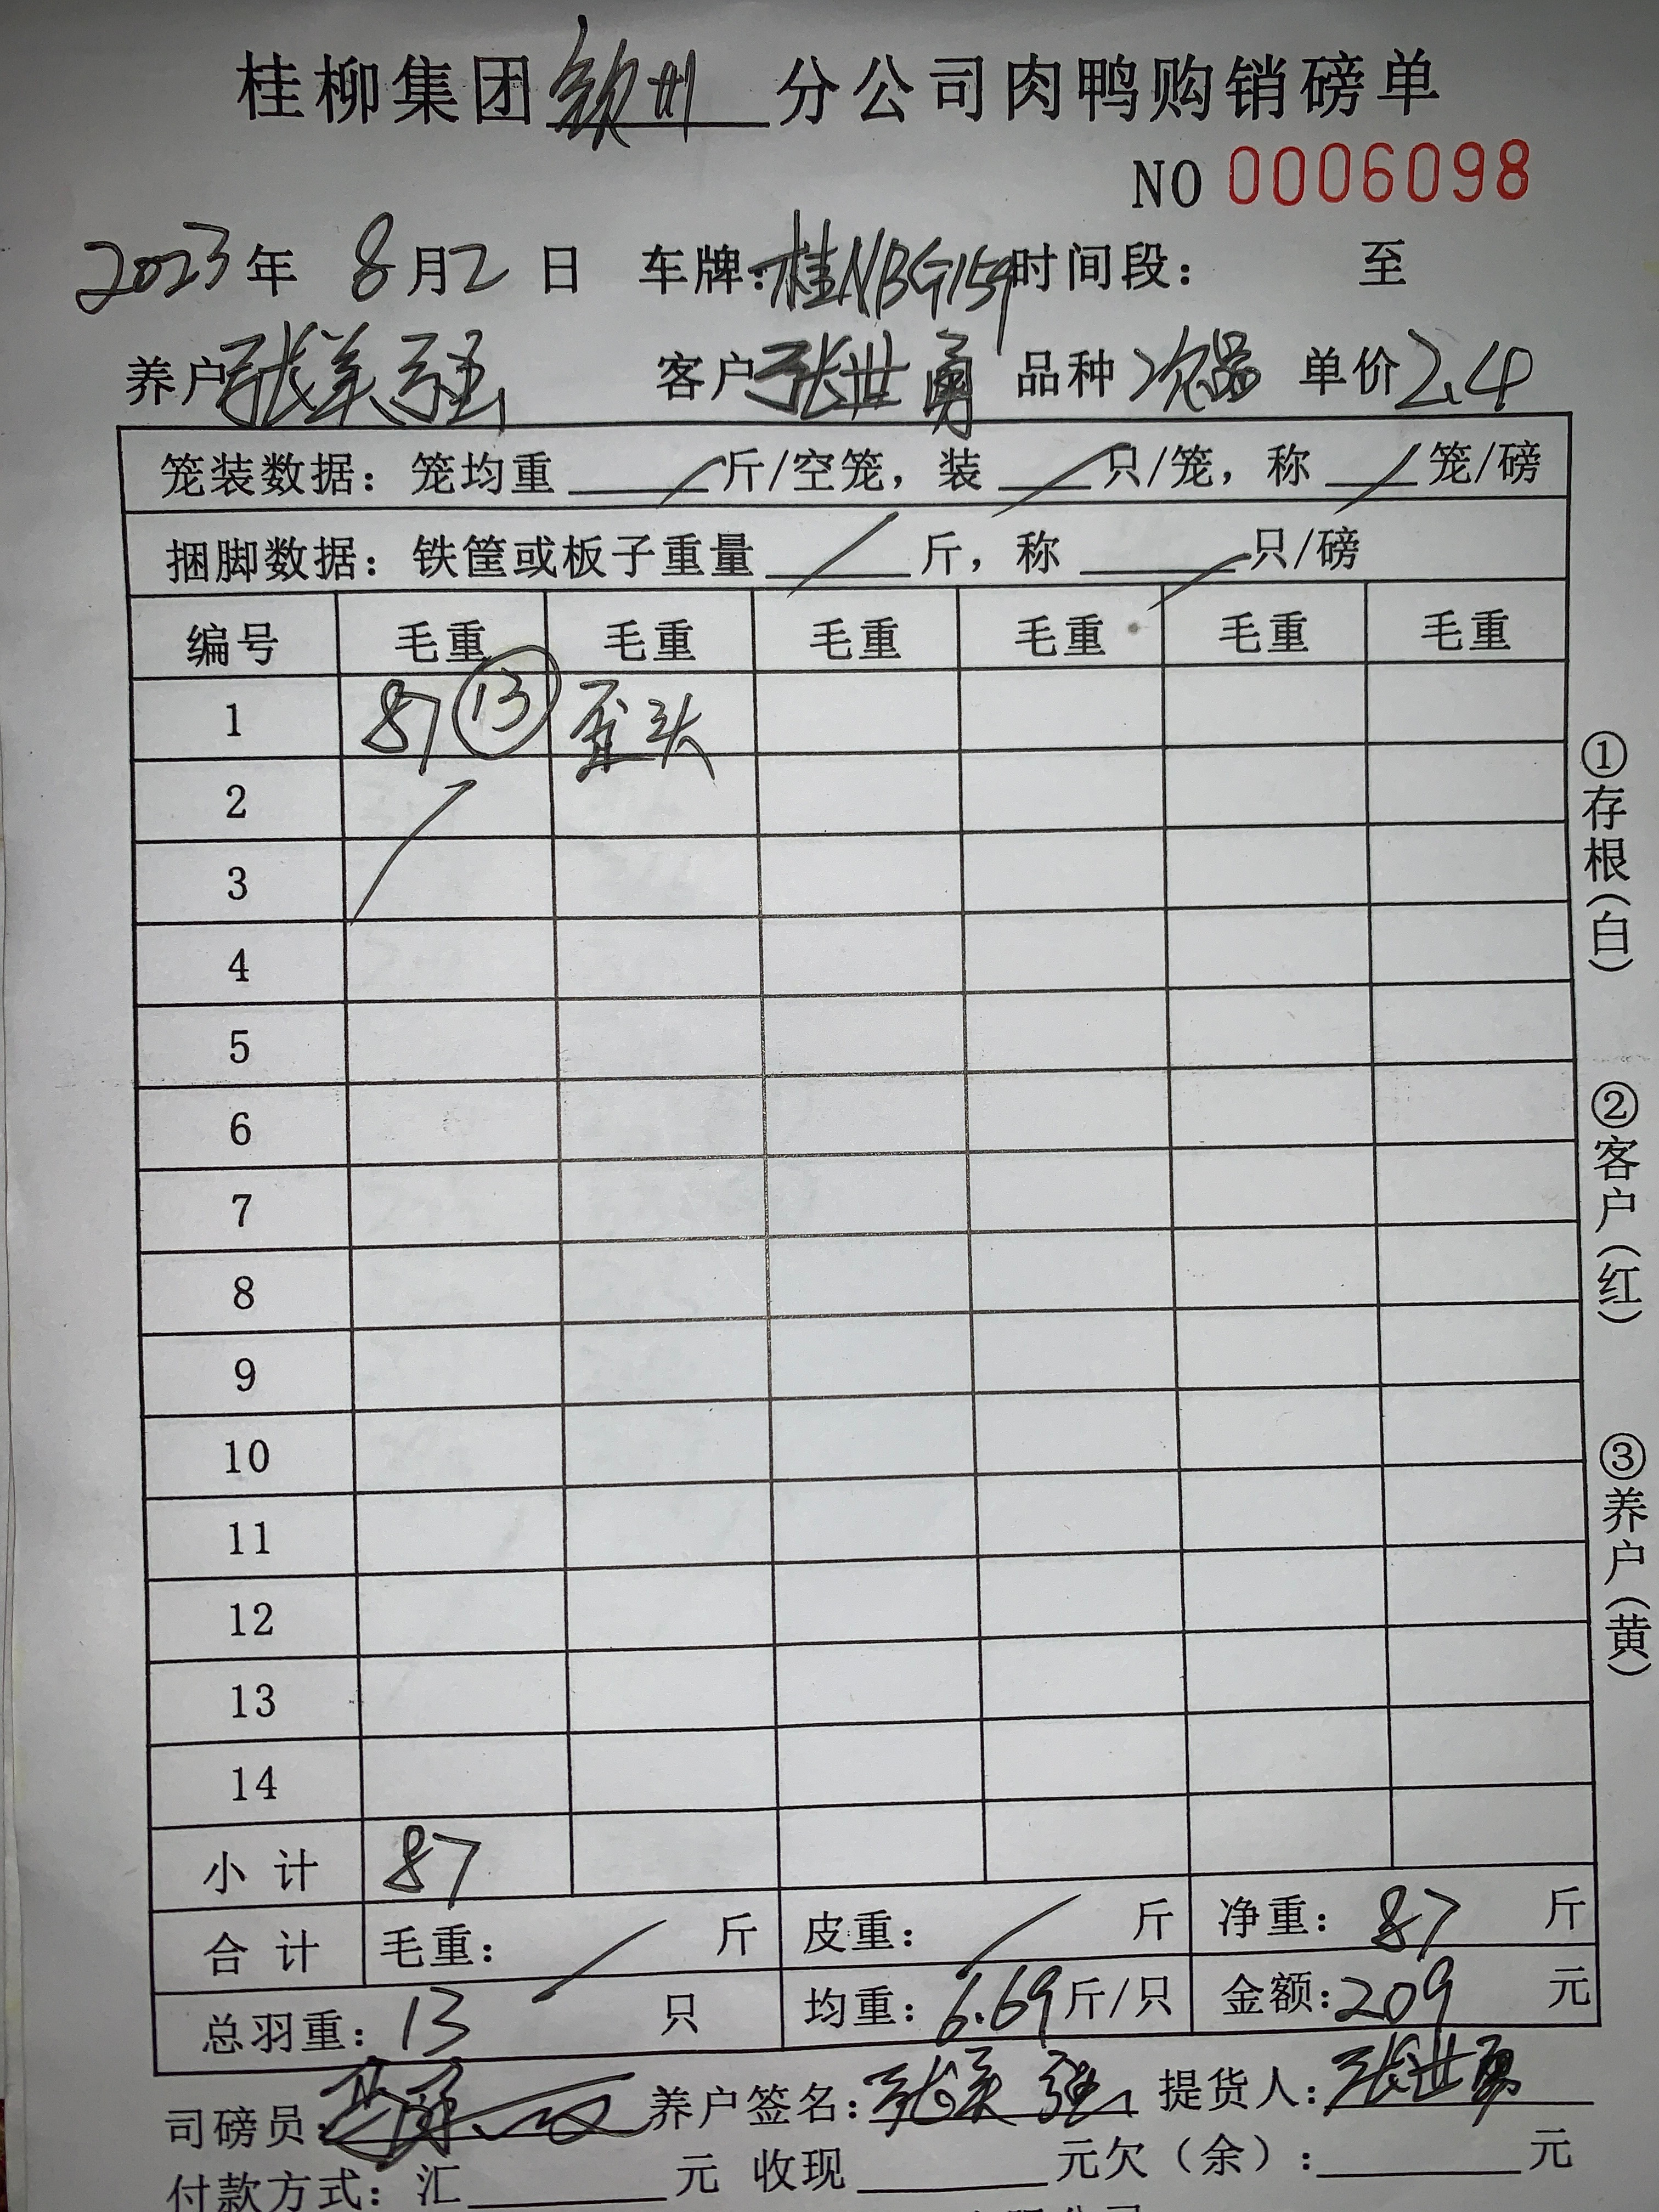 桂柳集团钦州分公司肉鸭购销磅单
NO 0006098
2023年 8月2日 车牌:桂NBG159 时间段: 至
养户张美强 客户张世勇 品种次品 单价2.4
笼装数据: 笼均重 / 斤/空笼, 装 / 只/笼, 称 / 笼/磅
捆脚数据: 铁筐或板子重量 / 斤, 称 / 只/磅
编号 毛重 毛重 毛重 毛重 毛重 毛重
1 87 ⑬ 歪头
2 /
3
4
5
6
7
8
9
10
11
12
13
14
小计 87
合计 毛重: / 斤 皮重: / 斤 净重: 87 斤
总羽重: 13 只 均重: 6.69斤/只 金额:209 元
司磅员: 养户签名:张美强 提货人:张世勇
付款方式: 汇 元 收现 元欠(余): 元
①存根(白)
②客户(红)
③养户(黄)